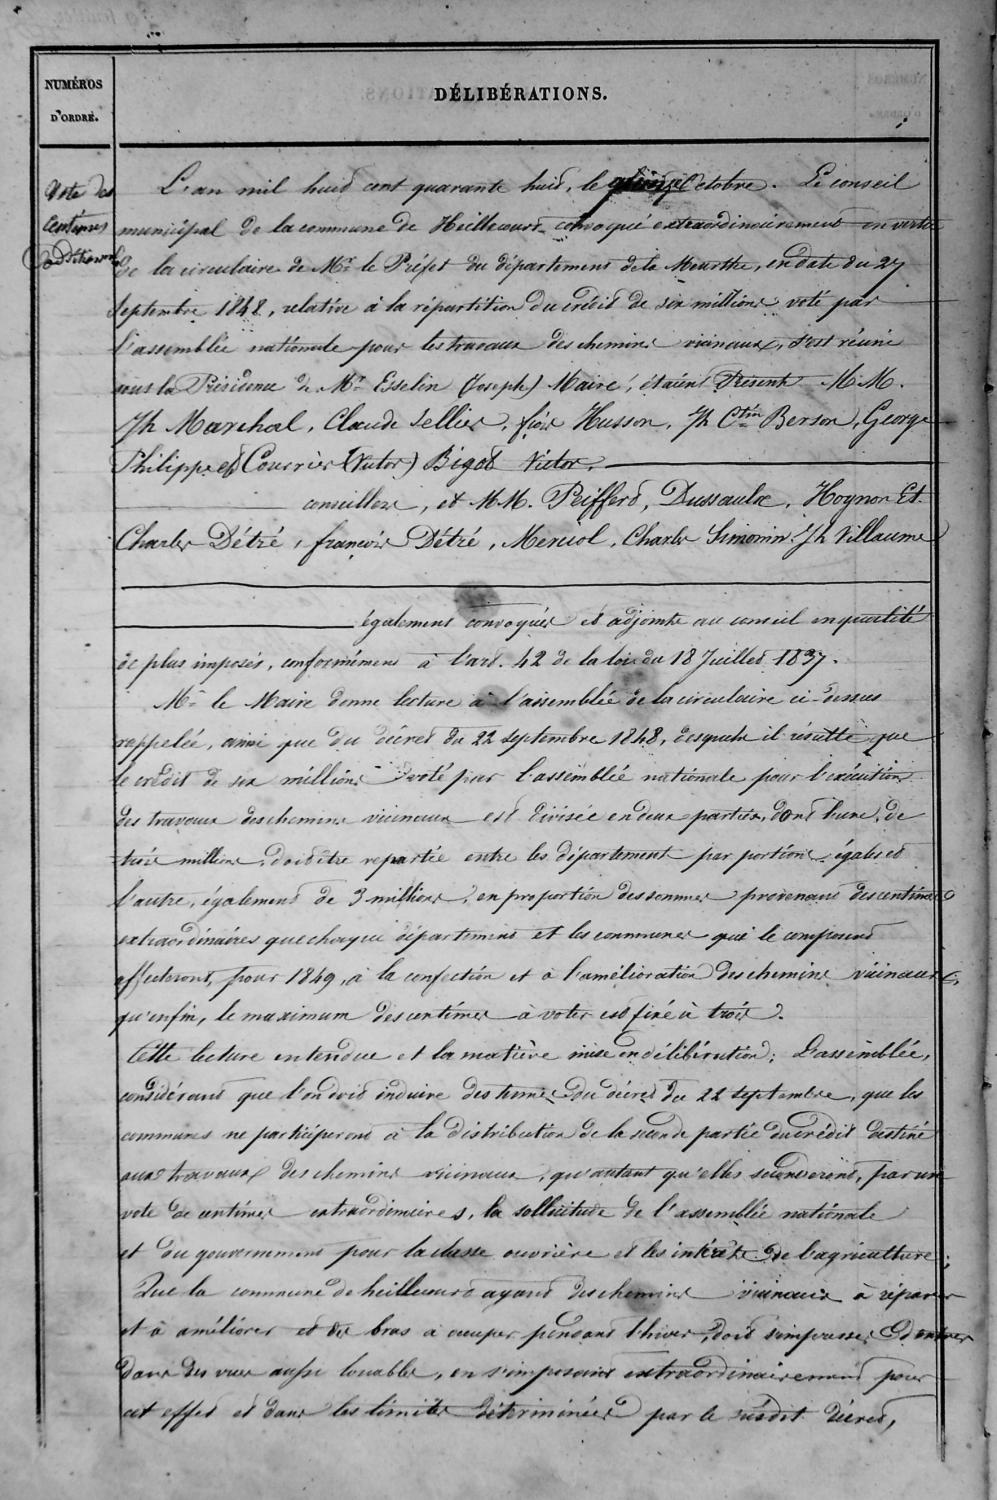 NUMÉROS
D'ORDRE.
DÉLIBÉRATIONS.
Vote des
Centimes
additionnels
L'an mil huit cent quarante huit, le quinze Octobre. Le conseil
municipal de la commune de Heillecourt convoqué extraordinairement en vertu
de la circulaire de Mr. le Préfet du département de la Meurthe, en date du 27
septembre 1848, relative à la répartition du crédit de six millions voté par
l'assemblée nationale pour les travaux des chemins vicinaux, s'est réuni
sous la Présidence de Mr. Esselin (Joseph) Maire, étaient Présents M.M.
Jh Marchal, Claude Sellier, Husson, Jh Ctin Berson, George
Philippe et Courrier (Victor) Bigot Victor,
conseillers, et M.M. Peifferd, Dussaulx, Hoynon Et.
Charles Détré, françois Détré, Meruol, Charles Simonin, Jh Villaume
également convoqués et adjoints au conseil en qualité
de plus imposés, conformément à l'art. 42 de la loi du 18 Juillet 1837.
Mr. le Maire donne lecture à l'assemblée de la circulaire ci-dessus
rappelée, ainsi que du décret du 22 septembre 1848, desquels il résulte que
le crédit de six millions voté par l'assemblée nationale pour l'exécution
des travaux des chemins vicinaux est divisée en deux parties, dont l'une, de
trois millions, doit être repartie entre les département par portions égales et
l'autre, également de 3 millions, en proportion des sommes provenant des centimes
extraordinaires que chaque département et les communes qui le composent
affecteront, pour 1849, à la confection et à l'amélioration des chemins vicinaux,
qu'enfin, le maximum des centimes à voter est fixé à trois.
Cette lecture entendue et la matière mise en délibération; L'assemblée,
considérant que l'on doit induire des termes du décret du 22 septembre, que les
communes ne participeront à la distribution de la seconde partie du crédit destiné
aux travaux des chemins vicinaux, qu'autant qu'elles seconderont, par un
vote de centimes extraordinaires, la sollicitude de l'assemblée nationale
et du gouvernement pour la classe ouvrière et les intérêts de l'agriculture;
Que la commune de heillecourt ayant des chemins vicinaux à réparer
et à améliorer et des bras à occuper pendant l'hiver, doit s'empresser d'entrer
dans des vues aussi louables, en s'imposant extraordinairement pour
cet effet et dans les limites déterminées par le susdit décret,